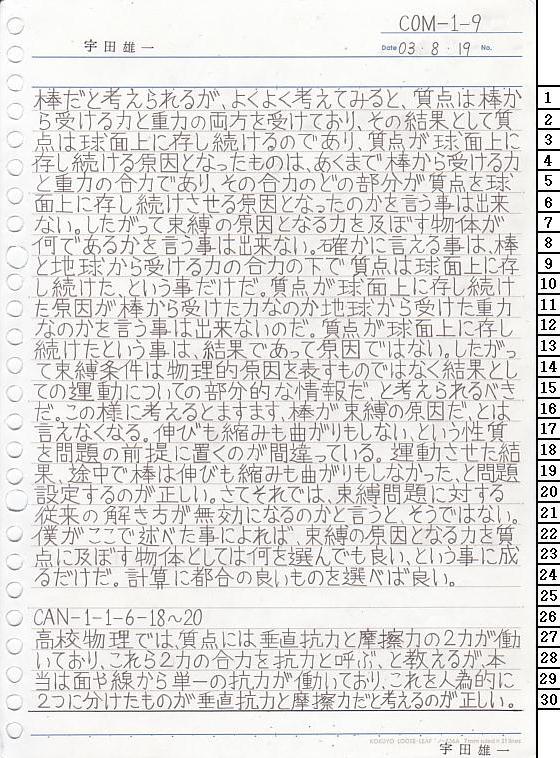 COM-1-9
宇田雄一
Date 03・8・19 No.
棒だと考えられるが、よくよく考えてみると、質点は棒か
ら受ける力と重力の両方を受けており、その結果として質
点は球面上に存し続けるのであり、質点が球面上に
存し続ける原因となったものは、あくまで棒から受ける力
と重力の合力であり、その合力のどの部分が質点を球
面上に存し続けさせる原因となったのかを言う事は出来
ない。したがって束縛の原因となる力を及ぼす物体が
何であるかを言う事は出来ない。確かに言える事は、棒
と地球から受ける力の合力の下で質点は球面上に存
し続けた、という事だけだ。質点が球面上に存し続け
た原因が棒から受けた力なのか地球から受けた重力
なのかを言う事は出来ないのだ。質点が球面上に存し
続けたという事は、結果であって原因ではない。したがっ
て束縛条件は物理的原因を表すものではなく結果とし
ての運動についての部分的な情報だ、と考えられるべき
だ。この様に考えるとますます、棒が束縛の原因だ、とは
言えなくなる。伸びも縮みも曲がりもしない、という性質
を問題の前提に置くのが間違っている。運動させた結
果、途中で棒は伸びも縮みも曲がりもしなかった、と問題
設定するのが正しい。さてそれでは、束縛問題に対する
従来の解き方が無効になるのかと言うと、そうではない。
僕がここで述べた事によれば、束縛の原因となる力を質
点に及ぼす物体としては何を選んでも良い、という事に成
るだけだ。計算に都合の良いものを選べば良い。
CAN-1-1-6-18〜20
高校物理では、質点には垂直抗力と摩擦力の2力が働
いており、これら2力の合力を抗力と呼ぶ、と教えるが、本
当は面や線から単一の抗力が働いており、これを人為的に
2つに分けたものが垂直抗力と摩擦力だと考えるのが正しい。
KOKUYO LOOSE-LEAF ノ-836A 7mm ruled × 31 lines
宇田雄一
1
2
3
4
5
6
7
8
9
10
11
12
13
14
15
16
17
18
19
20
21
22
23
24
25
26
27
28
29
30